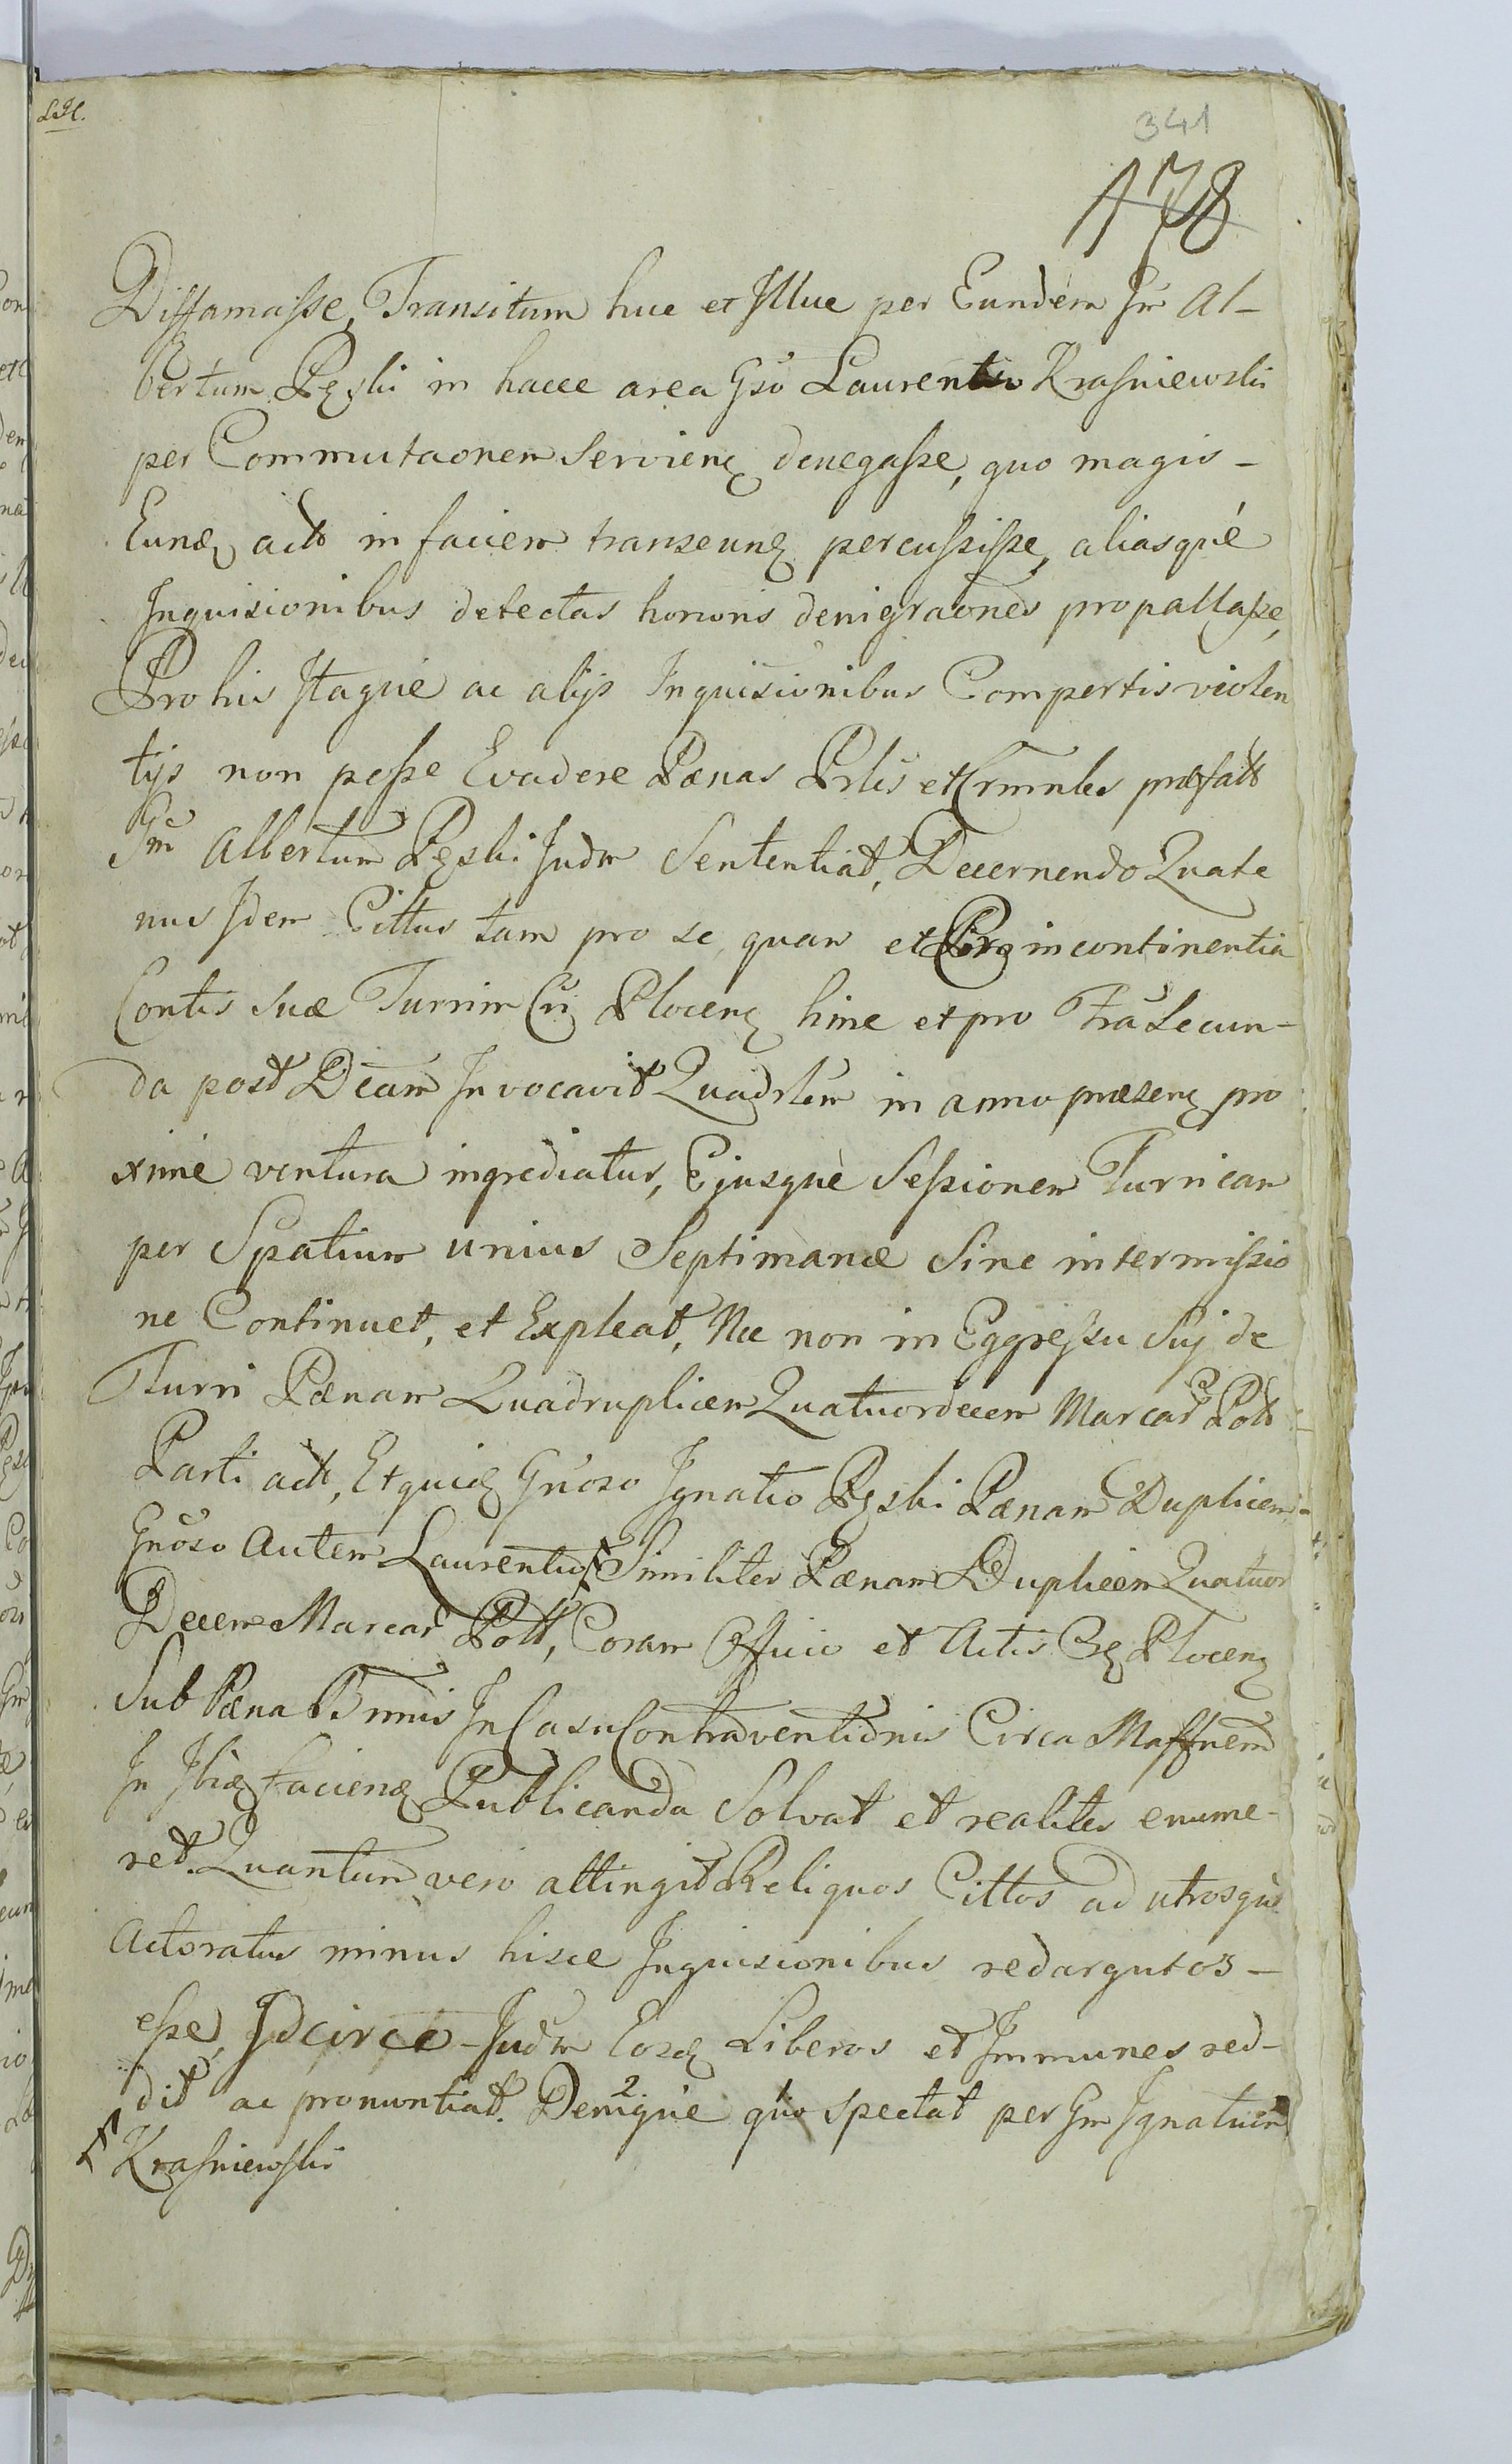 341
178
Diffamasse, Transitum huc et Illuc per Eundem Gm Al-
bertum Pęski in hacce area Gso Laurentio Krasniewski
per Commutaonem servienẹ denegasse, quo magis -
Eundẹ actt in faciem transeunẹ percussisse, aliasqué
Inquisionibus detectas honoris denigraones propallasse,
Pro his Itaqué ac alijs Inquisionibus Compertis violen
tijs non posse Evadere Pænas Prlés et Crmnles præfatt
Gm Albertum Pęski Judm Sententiat, Decernendo Quate
nus Idem Cittus tam pro se, quam et Pro incontinentia
Contis suæ Turrim Plocenẹ hinc et pro Fra Secun-
da post Dcam Invocavit Quadrlem in anno præsenẹ pro
ximé ventura ingrediatur, Ejusqué Sessionem Turricam
per Spatium unius Septimanæ Sine intermissio
ne Continuet, et Expleat, Nec non in Eggressu Suj de
Turri Pænam Quadruplicem Quatuordecem Marcar Poll
Parti actt, Et quidẹ Gnoso Ignatio Pęski Pænam Duplicem
Gnoso Autem Laurentio Similiter Pænam Duplicem Quatuor
Decem Marcar Poll, Coram Officio et Actis Plocenẹ
Sub Pæna Bmnis In Casu Contraventionis Circa Maffnem
In faciendẹ Publicanda Solvat et realiter enume-
ret. Quantum vero attingit Reliquos Cittos ad utrosqué
Actoratus minus hisce Inquisionibus redargutos -
esse, Idcirco - Judm Eosdẹ Liberos et Immunes red-
dit ac pronuntiat. Deniqué quo spectat per Gm Ignatium
Krasniewski